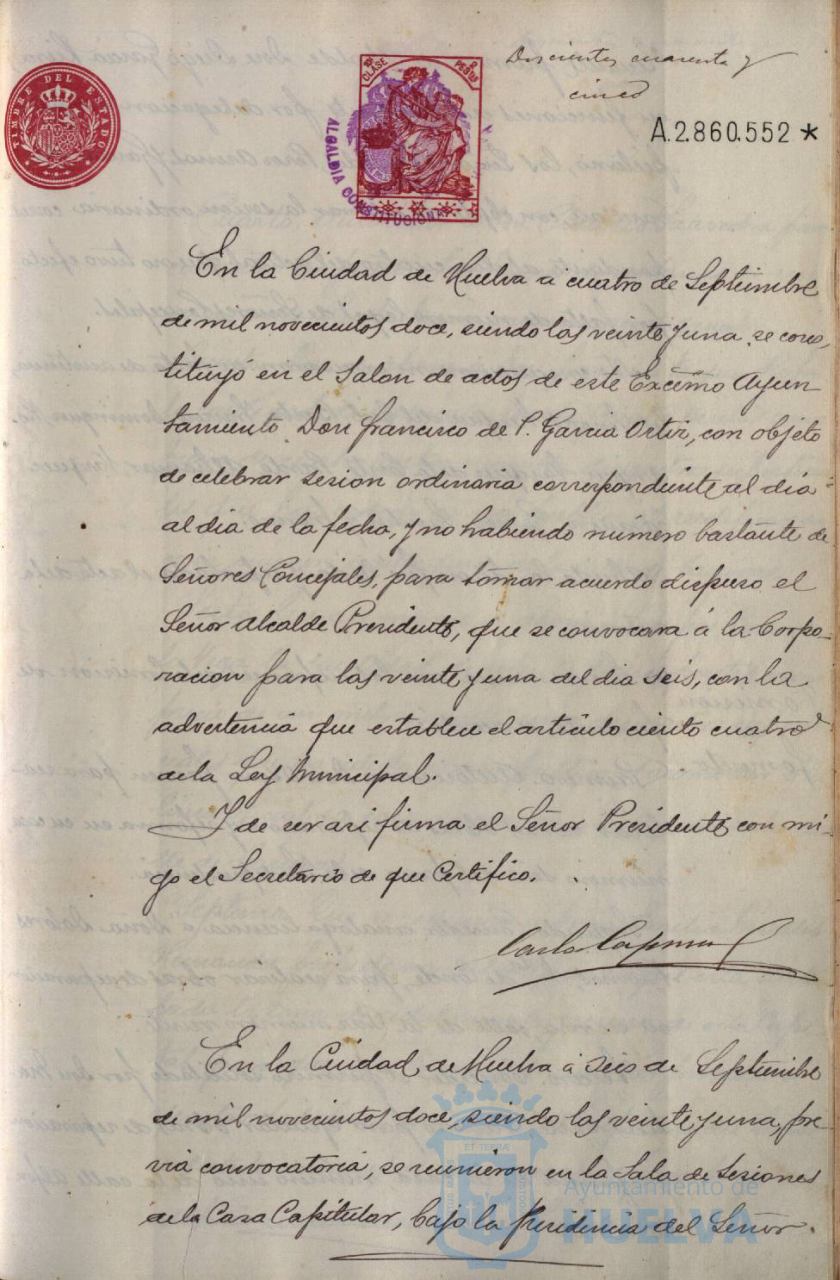 TIMBRE DEL ESTADO
10ª CLASE
PESETAS
ALCALDIA CONSTITUCIONAL
Doscientos cuarenta y
cinco
A.2.860.552 *
En la Ciudad de Huelva á cuatro de Septiembre
de mil novecientos doce, siendo las veinte y una, se cons-
tituyó en el Salon de actos de este Excmo Ayun-
tamiento Don Francisco de P. Garcia Ortiz, con objeto
de celebrar sesion ordinaria correspondiente al dia
al dia de la fecha, y no habiendo número bastante de
Señores Concejales, para tomar acuerdo dispuso el
Señor Alcalde Presidente, que se convocara á la Corpo-
racion para las veinte y una del dia seis, con la
advertencia que establece el artículo ciento cuatro
de la Ley Municipal.
Y de ser asi firma el Señor Presidente con mi-
go el Secretario de que Certifico.
En la Ciudad de Huelva á seis de Septiembre
de mil novecientos doce, siendo las veinte y una, pre-
via convocatoria, se reunieron en la Sala de Sesiones
de la Casa Capitular, bajo la Presidencia del Señor
Ayuntamiento de
HUELVA